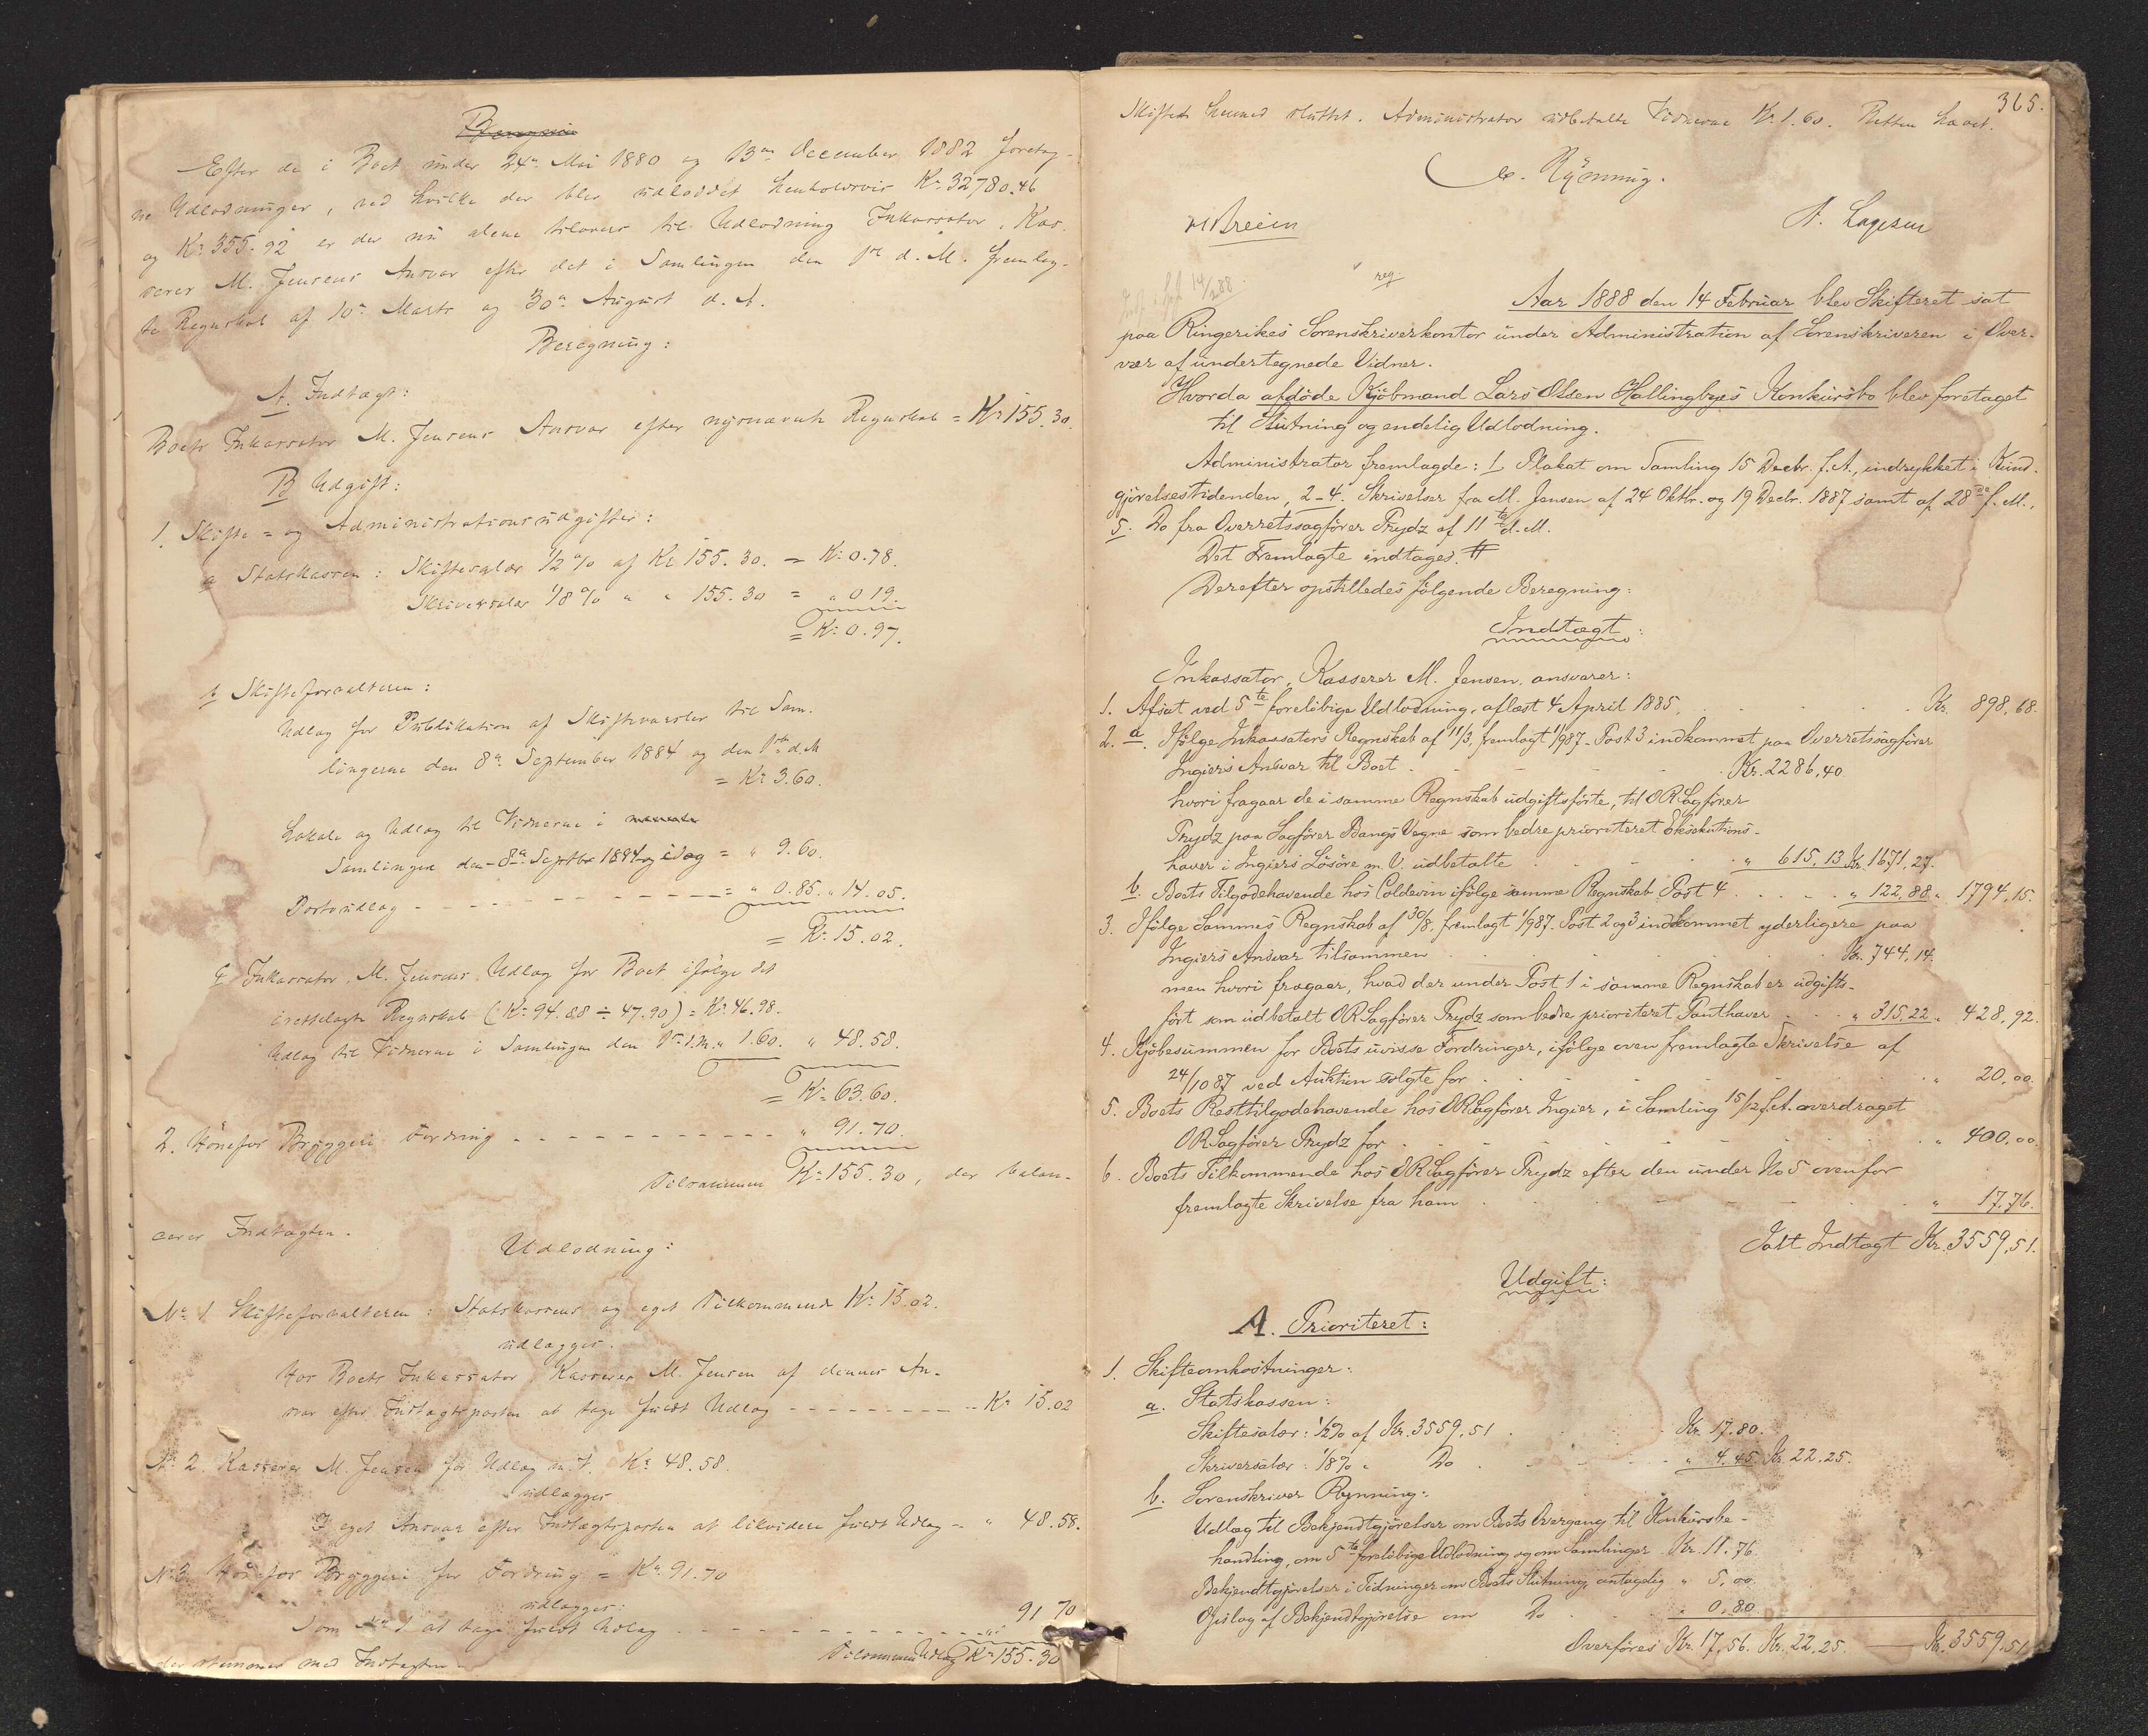 Efter de i Boet under 24de Mai 1880 og 13de December 1882 foretag-
ne Udlodninger, ved hvilke der blev udloddet henholdsvis Kr. 32780.46
og Kr. 355.92 er der nu alene tilovers til Udlodning Inkassator, Kas-
serer M. Jensens Ansvar efter det i Samlingen den 1ste d. M. fremlag-
te Regnskab af 10de Marts og 30te August d. A.
Beregning:
A. Indtægt:
Boets Inkassator M. Jensens Ansvar efter nysnævnte Regnskab = Kr 155.30.
B Udgift:
1. Skifte- og Administrationsudgifter:
a Statskassen: Skiftesalær 1/2 % af Kr 155.30. = Kr. 0.78.
Skriversalær 1/8 % " " 155.30 = " 0 19.
= Kr. 0.97.
b Skifteforvalteren:
Udlag for Publikation af Skiftevarsler til Sam-
lingerne den 8de September 1884 og den 1ste d. M
= Kr. 3.60.
Lokale og Udlag til Vidnerne i
Samlingen den 8de Septbr 1884 og idag = " 9.60.
Portoudlag - - - = " 0.85. " 14.05.
= Kr. 15.02.
c Inkassator, M. Jensens Udlag for Boet ifølge det
irettelagte Regnskab (Kr. 94.88 ÷ 47.90) = Kr. 46.98.
Udlag til Vidnerne i Samlingen den 1ste d. M. " 1.60. " 48.58.
= Kr. 63.60.
2. Hønefos Bryggeri Fordring - - - " 91.70.
Tilsammen Kr. 155.30, der balan-
cerer Indtægten.
Udlodning:
No 1 Skifteforvalteren: Statskassens og eget Tilkommende Kr. 15.02.
udlægges.
Hos Boets Inkassator, Kasserer M. Jensen af dennes An-
svar efter Indtægtsposten at tage fuldt Udlag - - - Kr 15.02
No 2 Kasserer M. Jensen for Udlag m. V. Kr 48.58.
udlægges
I eget Ansvar efter Indtægtsposten at likvidere fuldt Udlag - " 48.58.
No 3 Hønefos Bryggeri for Fordring = Kr. 91.70
udlægges:
Som No 1 at tage fuldt Udlag - - - 91 70
Tilsammen Udlag Kr 155.30
der stemmer med Indtægten.
365.
Skiftet hermed sluttet. Administrator udbetalte Vidnerne Kr. 1.60. Retten hævet.
Rynning.
reg.
Aar 1888 den 14 Februar blev Skifteret sat
paa Ringerikes Sorenskriverkontor under Administration af Sorenskriveren i Over-
vær af undertegnede Vidner.
Hvorda afdøde Kjøbmand Lars Olsen Hallingbyes Konkursbo blev foretaget
til Slutning og endelig Udlodning.
Administrator fremlagde: 1. Plakat om Samling 15 Decbr. f. A., indrykket i Kund-
gjørelsestidenden, 2-4. Skrivelser fra M. Jensen af 24 Oktbr. og 19 Decbr. 1887 samt af 28de f. M.,
5. Do fra Overretssagfører Trydz af 11te d. M.
Det Fremlagte indtages #
Derefter opstilledes følgende Beregning:
Indtægt:
Inkassator, Kasserer M. Jensen, ansvarer:
1. Afsat ved 5te foreløbige Udlodning, aflæst 4 April 1885, . . . Kr. 898,68.
2. a. Ifølge Inkassators Regnskab af 11/3, fremlagt 1/9 87 - Post 3 indkommet paa Overretssagfører
Ingiers Ansvar til Boet . . . Kr. 2286,40
hvori fragaar de i samme Regnskab udgiftsførte, til ORSagfører
Trydz paa Sagfører Bangs Vegne som bedre prioriteret Eksekutions-
haver i Ingiers Løsøre m. V. udbetalte . . . " 615,13 Kr. 1671,27.
b. Boets Tilgodehavende hos Coldevin ifølge samme Regnskab Post 4 . . . " 122,88 " 1794,15.
3. Ifølge Sammes Regnskab af 30/8, fremlagt 1/9 87. Post 2 og 3 indkommet yderligere paa
Ingiers Ansvar tilsammen . . . Kr. 744,14.
men hvori fragaar, hvad der under Post 1 i samme Regnskab er udgifts-
ført som udbetalt ORSagfører Trydz som bedre prioriteret Panthaver . . . " 315,22 " 428,92.
4. Kjøbesummen for Boets uvisse Fordringer, ifølge oven fremlagte Skrivelse af
24/10 87 ved Auktion solgte for . . . " 20,00.
5. Boets Resttilgodehavende hos ORSagfører Ingier, i Samling 15/12 f. A. overdraget
ORSagfører Trydz for . . . " 400,00.
6. Boets Tilkommende hos ORSagfører Trydz efter den under No 5 ovenfor
fremlagte Skrivelse fra ham . . . " 17,76.
Ialt Indtægt Kr. 3559,51.
Udgift:
A. Prioriteret:
1. Skifteomkostninger:
a. Statskassen:
Skiftesalær: 1/2 % af Kr. 3559,51 . . . Kr. 17.80.
Skriversalær: 1/8 % " Do . . . " 4,45. Kr. 22,25.
b. Sorenskriver Rynning:
Udlæg til Bekjendtgjørelser om Boets Overgang til Konkursbe-
handling, om 5te foreløbige Udlodning og om Samlinger Kr. 11.76
Bekjendtgjørelser i Tidninger om Boets Slutning, antagelig " 5,00.
Opslag af Bekjendtgjørelse om Do . . . " 0,80.
Overføres Kr. 17,56. Kr. 22,25. — Kr. 3559,51.